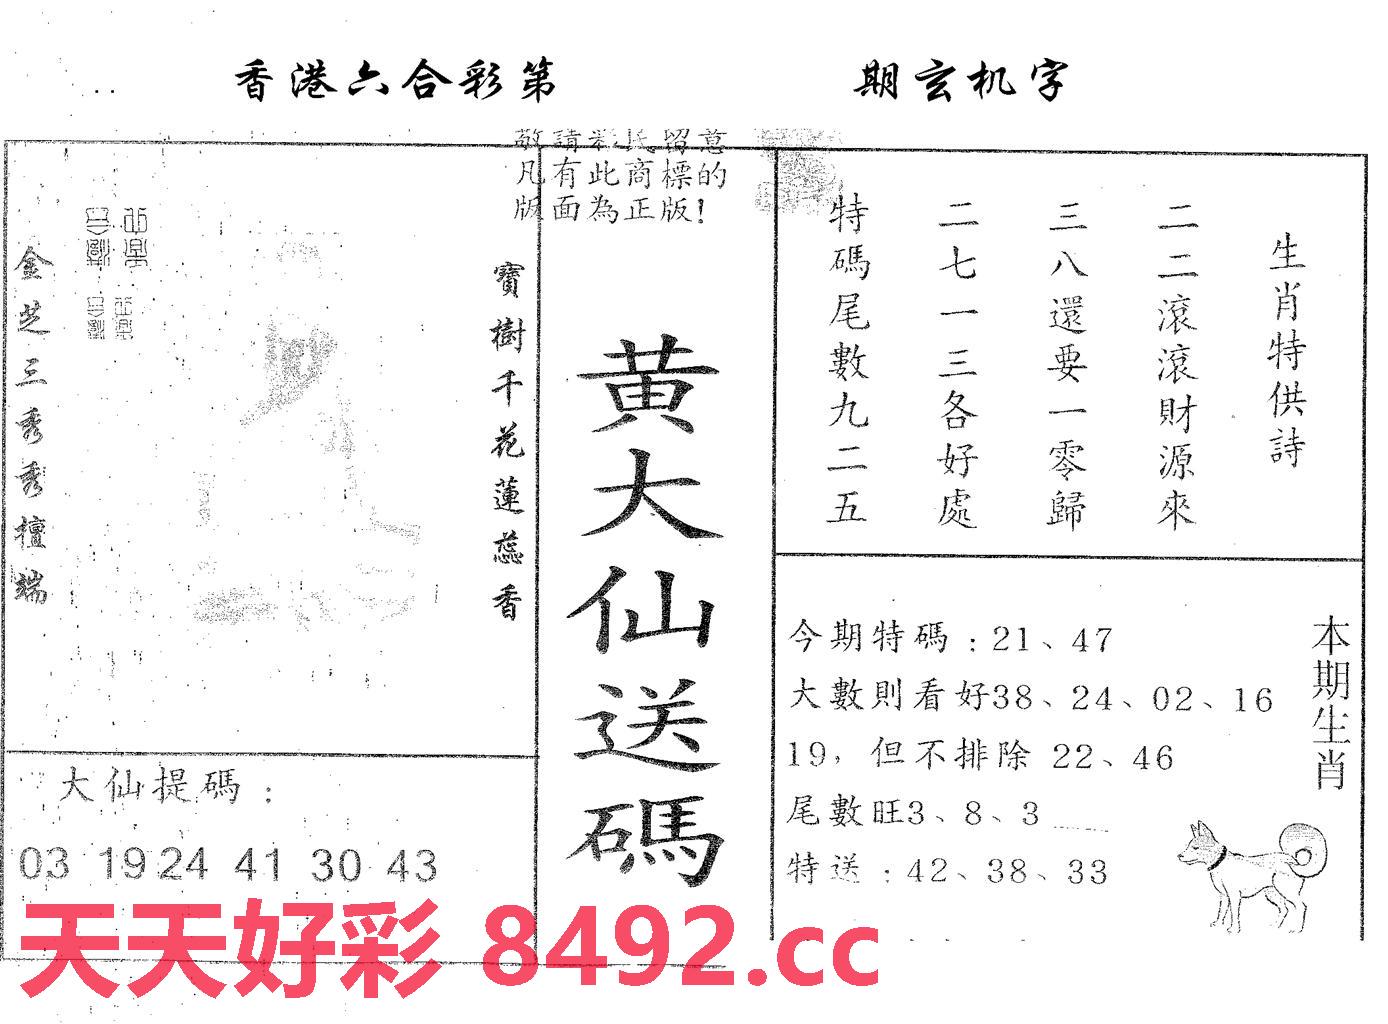 香港六合彩第 期玄机字
敬請彩民留意
凡有此商標的
版面為正版！
金芝三秀秀檀端
寶樹千花蓮蕊香
黄大仙送碼
生肖特供詩
二二滾滾財源來
三八還要一零歸
二七一三各好處
特碼尾數九二五
大仙提碼：
03 19 24 41 30 43
今期特碼：21、47
大數則看好38、24、02、16
19，但不排除 22、46
尾數旺3、8、3
特送：42、38、33
本期生肖
天天好彩 8492.cc